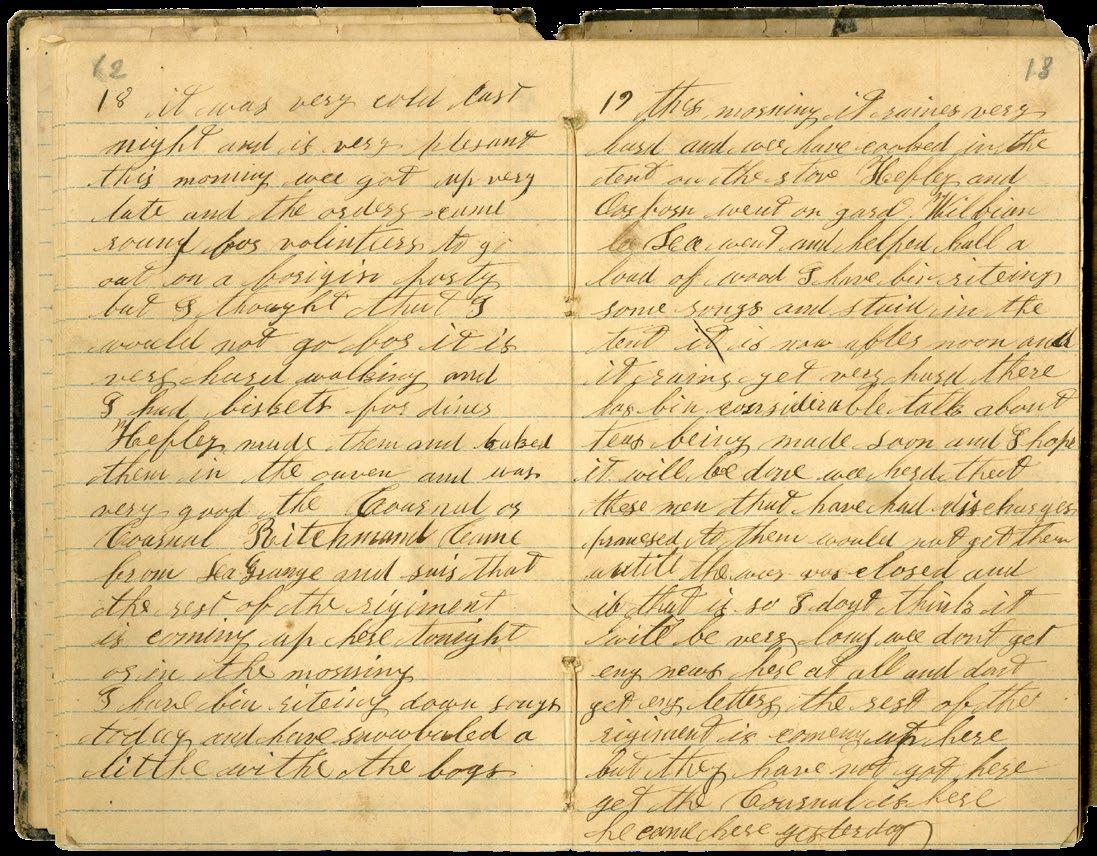 12
18 it was very cold last
night and is very plesant
this morning wee got up very
late and the orders came
round for volintiers to go
out on a forigin party
but I thought that I
would not go for it is
very hard walking and
I had biskets for diner
Hefley made them and baked
them in the ouven and was
very good the Cournal or
Cournal Ritchmand Came
from La Grange and sais that
the rest of the rigiment
is coming up here tonight
or in the morning
I have bin riteing down songs
today and have snowbaled a
little withe the boys
13
19 this morning it raines very
hard and wee have cooked in the
tent on the stove Hefley and
Oosborn went on gard William
Lee went and helped hall a
load of wood I have bin riteing
some songs and staid in the
tent it is now after noon and
it rains yet very hard there
has bin considerable talk about
being made soon and I hope
it will be done wee herd that
these men that have had discharges
promesed to them would not get them
untill the war was closed and
if that is so I dont think it
will be very long wee dont get
eny news here at all and dont
get eny letters the rest of the
rigiment is comeing up here
but they have not got here
yet the Cournal is here
he came here yesterday